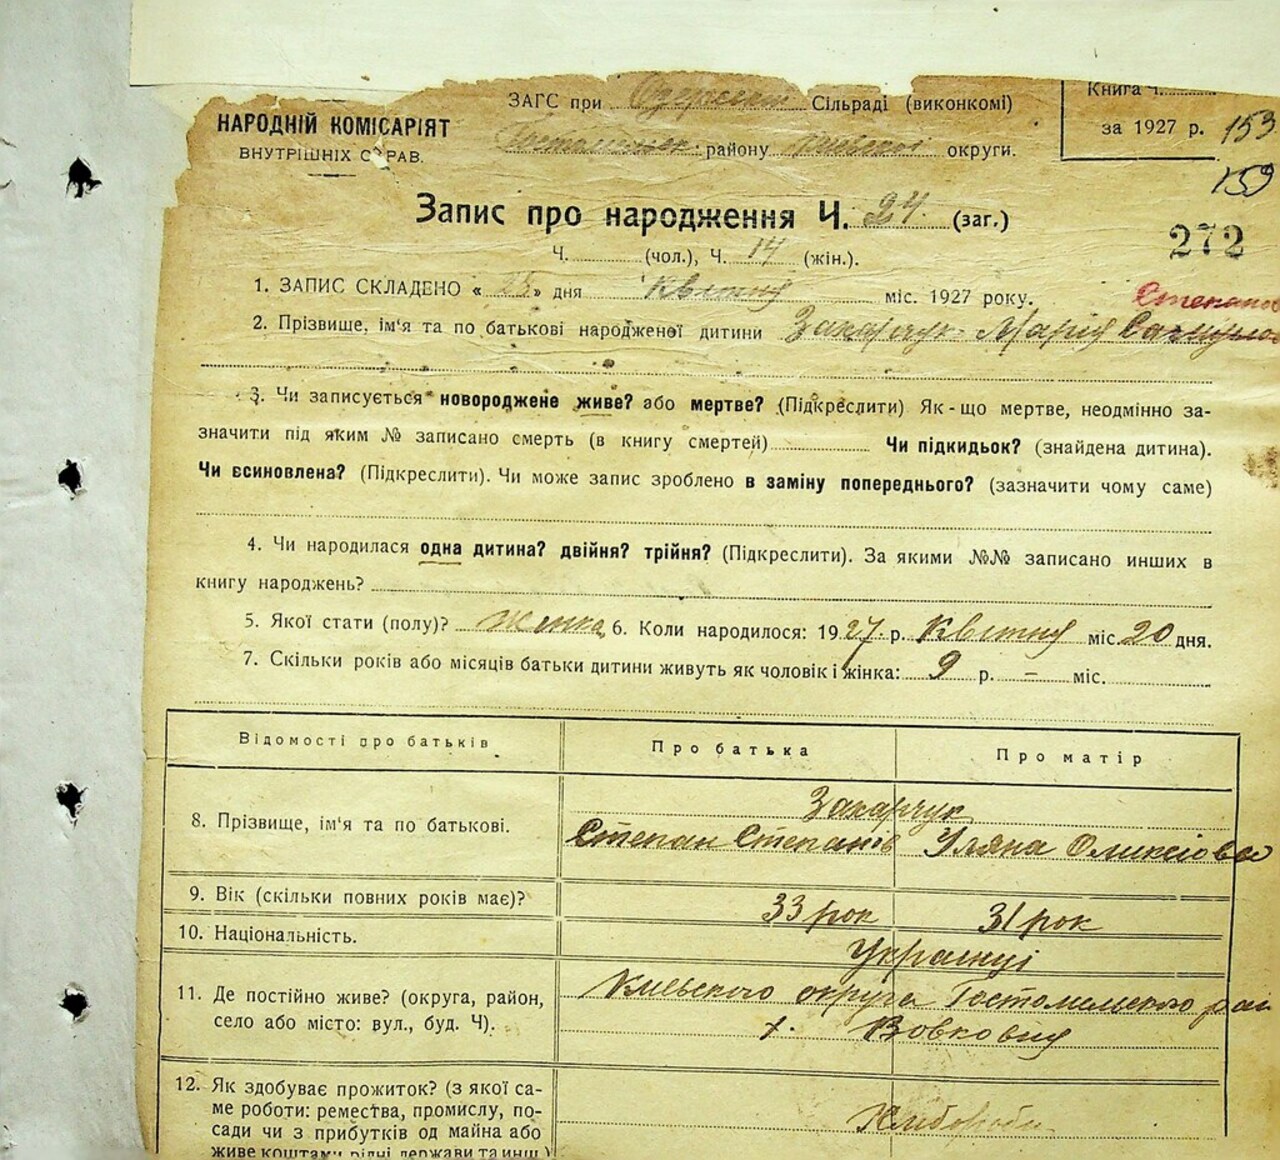 ЗАГС при Сільраді (виконкомі)
НАРОДНІЙ КОМІСАРІЯТ
ВНУТРІШНІХ СПРАВ.
району округи.
Книга Ч.
за 1927 р. 153
159
272
Запис про народження Ч. 24. (заг.)
Ч. (чол.), Ч. 14 (жін.).
1. ЗАПИС СКЛАДЕНО « 25 » дня Квітня міс. 1927 року.
Степанов
2. Прізвище, ім'я та по батькові народженої дитини Захарчук Марія
3. Чи записується новороджене живе? або мертве? (Підкреслити) Як-що мертве, неодмінно за-
значити під яким № записано смерть (в книгу смертей) Чи підкидьок? (знайдена дитина).
Чи всиновлена? (Підкреслити). Чи може запис зроблено в заміну попереднього? (зазначити чому саме)
4. Чи народилася одна дитина? двійня? трійня? (Підкреслити). За якими №№ записано инших в
книгу народжень?
5. Якої стати (полу)? Женка 6. Коли народилося: 1927. р. Квітня міс. 20 дня.
7. Скільки років або місяців батьки дитини живуть як чоловік і жінка: 9 р. – міс.
Відомості про батьків Про батька Про матір
8. Прізвище, ім'я та по батькові. Захарчук
Степан Степанів Уляна Оликсіова
9. Вік (скільки повних років має)? 33 рок 31 рок
10. Національність. Украінці
11. Де постійно живе? (округа, район,
село або місто: вул., буд. Ч).
Киевского округа Гостомельского рай
х. Вовковня
12. Як здобуває прожиток? (з якої са-
ме роботи: ремества, промислу, по-
сади чи з прибутків од майна або
живе коштами рідні держави та инш.)
Хлібороби